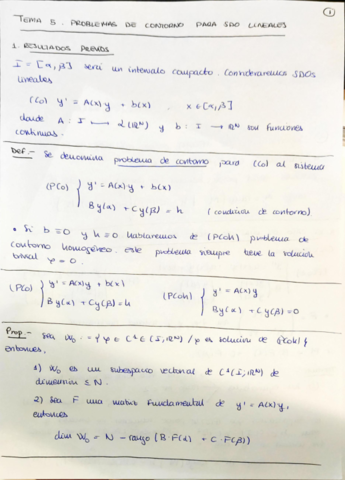 1
TEMA 5. PROBLEMAS DE CONTORNO PARA SDO LINEALES
1. RESULTADOS PREVIOS
I = [α, β] será un intervalo compacto. Consideraremos SDOs
lineales
(Co) y' = A(x)y + b(x) , x ∈ [α, β]
donde A : I ⟼ L(ℝᴺ) y b : I → ℝᴺ son funciones
continuas.
Def.- Se denomina problema de contorno para (Co) al sistema
(PCo) { y' = A(x)y + b(x)
By(α) + Cy(β) = h (condición de contorno)
• Si b ≡ 0 y h = 0 hablaremos de (PCoh) problema de
contorno homogéneo. este problema siempre tiene la solución
trivial φ = 0.
(PCo) { y' = A(x)y + b(x)
By(α) + Cy(β) = h
(PCoh) { y' = A(x)y
By(α) + Cy(β) = 0
Prop.- Sea W₀ := { φ ∈ C¹(I; ℝᴺ) / φ es solución de P(Coh) }
entonces,
1) W₀ es un subespacio vectorial de C¹(I; ℝᴺ) de
dimensión ≤ N.
2) Sea F una matriz fundamental de y' = A(x)y,
entonces
dim W₀ = N - rango (B·F(α) + C·F(β))